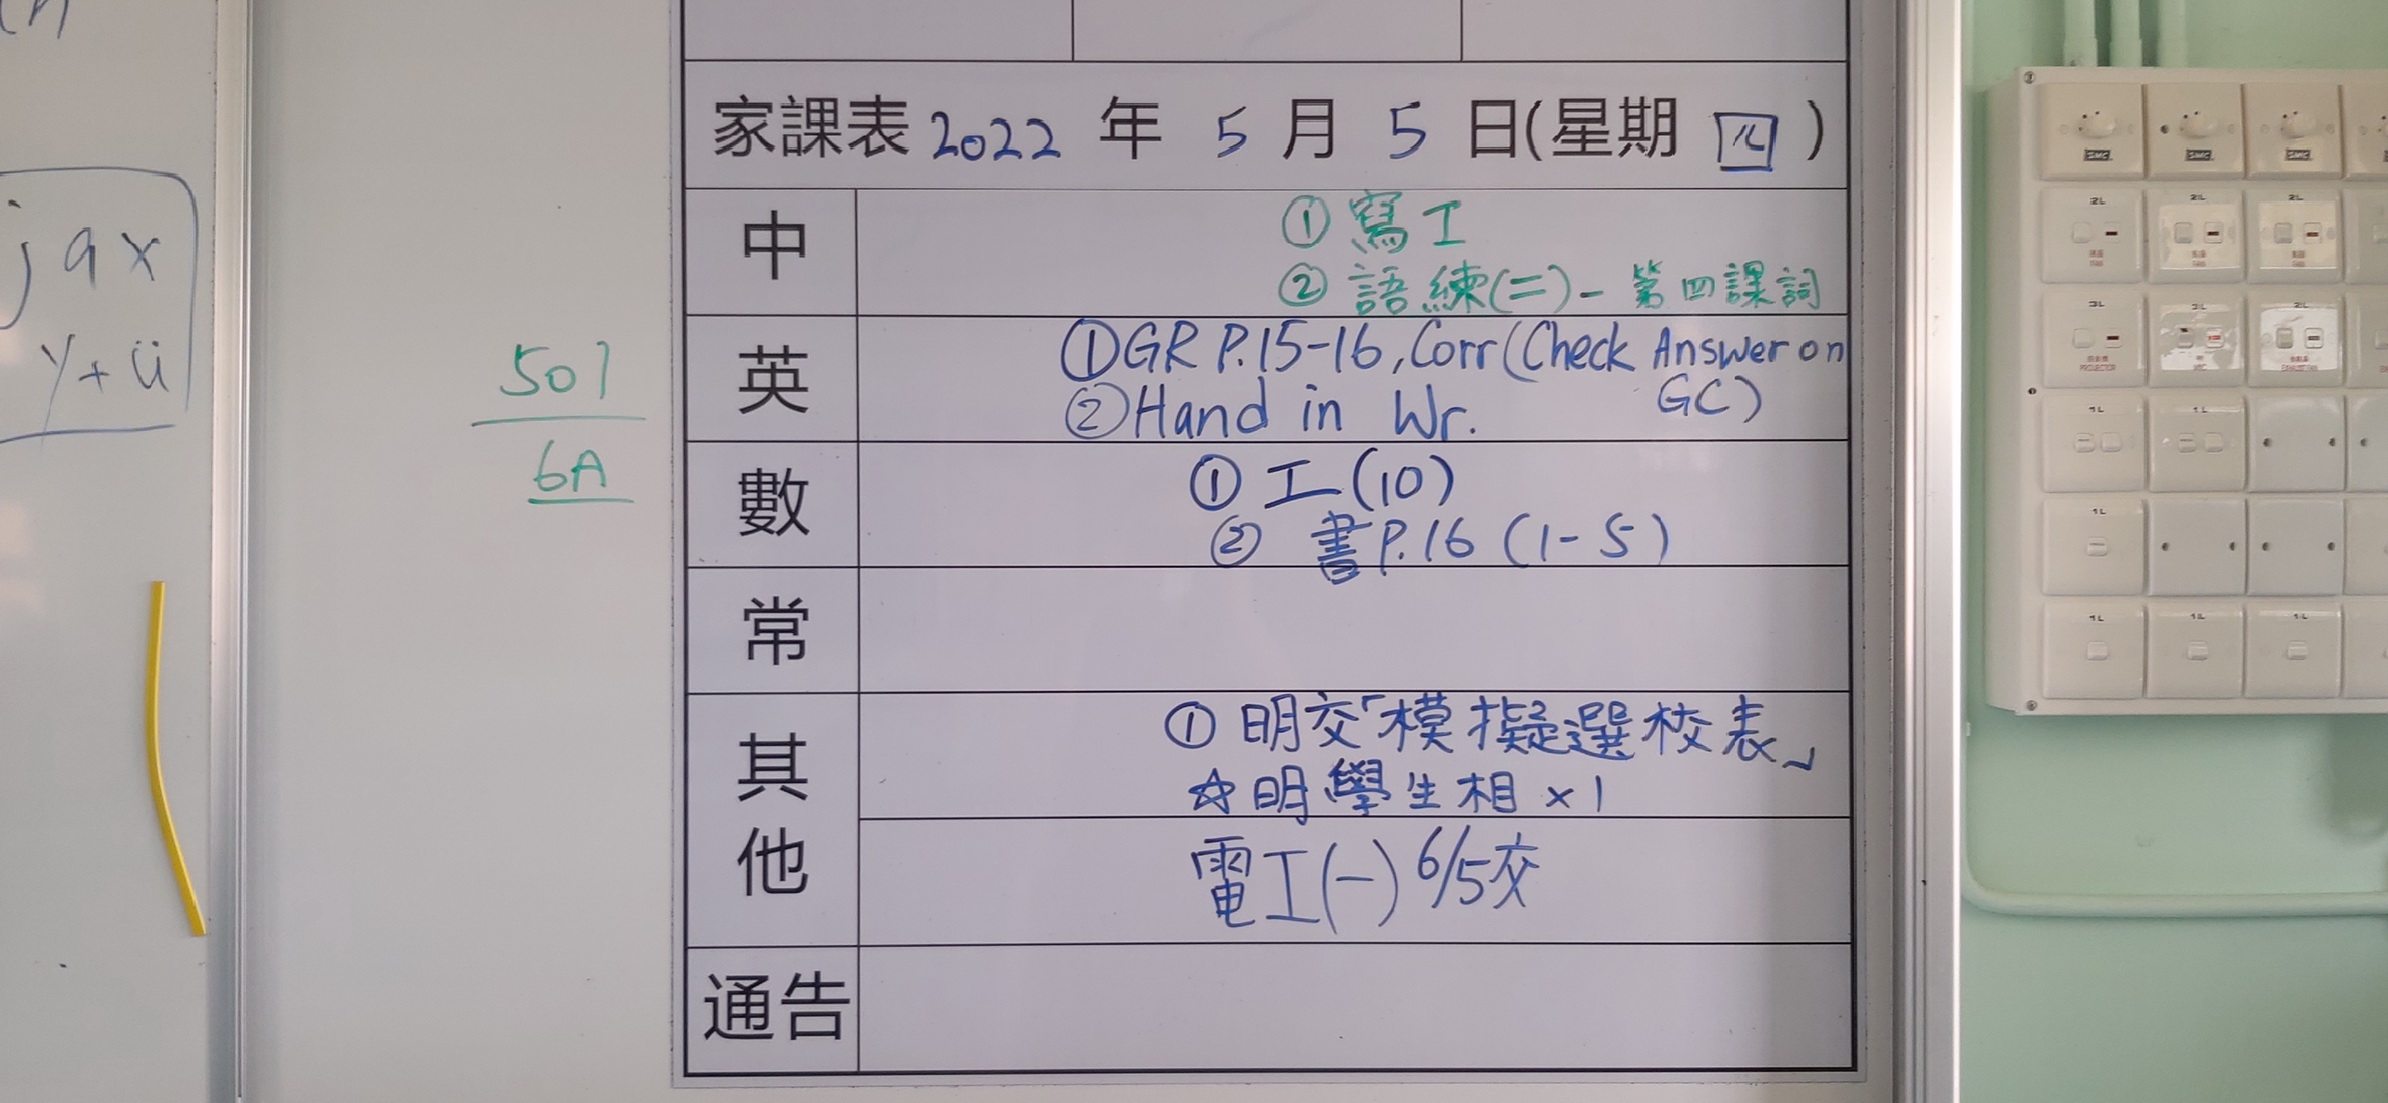 j q x
y + ü
501
6A
家課表 2022 年 5 月 5 日(星期 四 )
中
① 寫工
② 語練(二) - 第四課詞
英
① GR P.15-16, Corr (Check Answer on GC)
② Hand in Wr.
數
① 工(10)
② 書P.16 (1-5)
常
其他
① 明交「模擬選校表」
☆ 明學生相 x 1
電工(一) 6/5交
通告